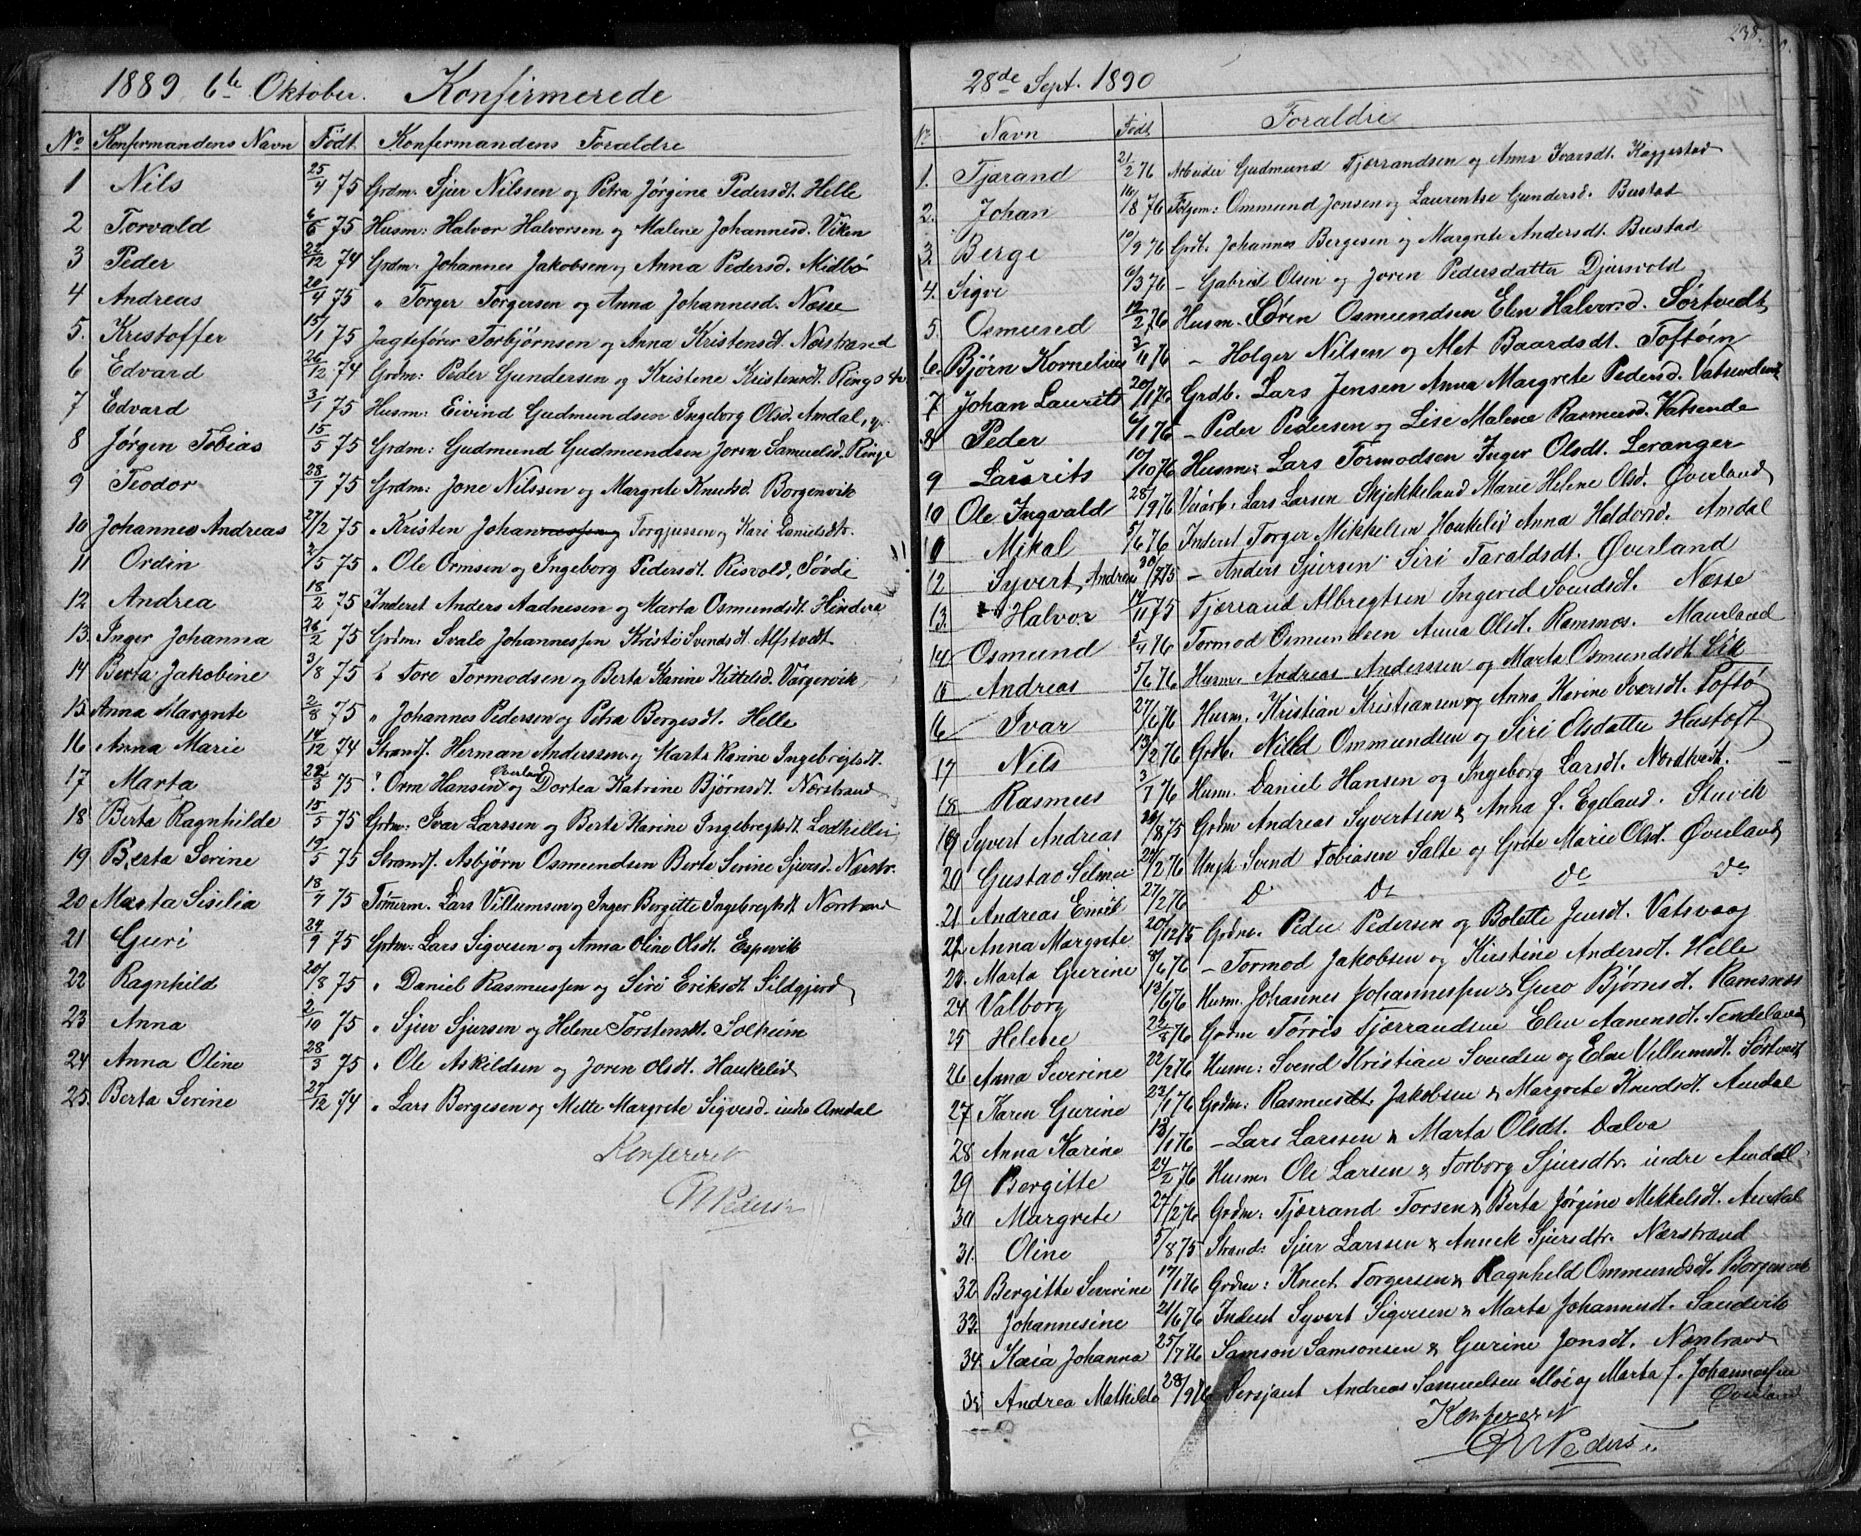 1889 6te Oktober. Konfirmerede
No Konfirmandens Navn Födt Konfirmandens Foraldre
1 Nils 25/4 75 Grdm: Sjur Nilssen og Petra Jørgine Pedersdt. Helle
2 Torvald 6/6 75 Husm: Halvor Halvorsen og Malene Johannesd. Viken
3 Peder 22/12 74 Grdm: Johannes Jakobsen og Anna Pedersd. Midbø
4 Andreas 20/4 75 " Torger Torgersen og Anna Johannesd. Næsse
5. Kristoffer 15/1 75 Jagtefører Torbjørnsen og Anna Kristensdt. Nærstrand
6 Edvard 26/12 74 Grdm: Peder Gundersen og Kristene Kristensdt.
7 Edvard 3/1 75 Husm: Eivind Gudmundsen Ingeborg Olsd. Amdal,
8 Jørgen Tobias 15/5 75 Grdm: Gudmund Gudmundsen Joren Samuelsd. Ringe
9 Teodor 28/7 75 Grdm: Jone Nilssen og Margrete Knudsd. Borgenvik
10 Johannes Andreas 27/2 75 " Kristen Torgjussen og Kari Danielsdtr.
11 Ordin 2/5 75 " Ole Ormsen og Ingeborg Pedersdt. Risvold, Søvde
12 Andrea 18/2 75 Inderst Anders Aadnesen og Marta Osmundsdt. Hindera
13. Inger Johanna 26/2 75 Grdm: Svale Johannessen Kristi Svendsdt. Alfstvedt
14 Berta Jakobine 3/8 75 " Tore Tormodsen og Berta Karine Kittelsd. Vargervik
15 Anna Margrete 2/8 75 " Johannes Pedersen og Petra Borgesdt. Helle
16 Anna Marie 14/12 74 Strands. Herman Anderssen og Marta Karine Ingebregtsdt.
17 Marta 22/3 75 " Orm Hansen Øverland og Dortea Katrine Bjørnsdt. Nærstrand
18 Berta Ragnhilde 15/5 75 Grdm: Ivar Larssen og Berta Karine Ingebregtsdt. Lodhelleri
19 Berta Serine 19/5 75 Strands. Asbjørn Osmundsen Berta Serine Sjursd. Nærstr.
20 Marta Sisilia 18/7 75 Tømrm. Lars Villumsen og Inger Bergitte Ingebregtsdt. Nærstrand
21 Guri 29/9 75 Grdm: Lars Sigvesen og Anna Oline Olsdt. Espevik
22 Ragnhild 20/8 75 " Daniel Rasmussen og Siri Eriksdt. Sildgjerd
23 Anna 2/10 75 " Sjur Sjursen og Helene Torstensdt. Solheim
24 Anna Oline 28/3 75 " Ole Askildsen og Joren Olsdt. Haukelid
25. Berta Serine 27/12 74 " Lars Borgesen og Mette Margrete Sigvesd. indre Amdal
Konfereret
Pedersen
238.
28de Sept. 1890
No Navn Födt Foraldre
1. Tjærand 21/2 76 Arbeider Gudmund Tjærrandsen og Anna Ivarsdt. Kaggestad
2. Johan 16/8 76 Folgem: Ommund Jonsen og Laurentse Gundersd. Bustad
3. Berge 10/9 76 Grdt. Johannes Bergesen og Margrete Andersdt. Bustad
4. Sigvi 6/3 76 – Gabriel Olsen og Joren Pedersdatter Djursvold
5. Osmund 12/2 76 Husm. Søren Osmundsen Elen Halvorsd. Sørtvedt
6. Bjørn Kornelius 3/11 76 – Holger Nilsen og Met Baardsdt. Toftøin
7 Johan Laurits 20/11 76 Grdb. Lars Jensen Anna Margrete Pedersd. Vatsendvik
8 Peder 6/11 76 – Peder Pedersen og Lise Malene Rasmusd. Vatsende
9 Laurits 10/10 76 Husm. Lars Tormodsen Inger Olsdt. Leranger
10 Ole Ingvald 28/9 76 Veiarb. Lars Larsen Skjekkeland Marie Helene Olsd. Øverland
11 Mikal 5/6 76 Inderst Torger Mikkelsen Haukelid Anna Haldorsd. Amdal
12 Syvert Andreas 30/7 75 – Anders Sjursen Siri Taraldsdt. Øverland
13. Halvor 14/11 75 Tjærrand Albregtsen Ingered Svendsdt. Næsse
14 Osmund 5/4 76 Tormod Osmundsen Anna Olsdt. Ramsnes. Maurland
15 Andreas 5/6 76 Husm. Andreas Anderssen og Marta Osmundsdt. Eik
16 Ivar 27/6 76 Husm. Kristian Kristiansen og Anna Karine Iversdt. Toftø
17 Nils 13/2 76 Grdb. Nild Ommundsen og Siri Olsdatte Hustoft
18 Rasmus 3/7 76 Husm. Daniel Hansen og Ingeborg Larsdt. Nordtvedt.
19 Syvert Andreas 26/8 75 Grdm Andreas Syvertsen & Anna f. Egeland. Stuvik
20 Gustav Selmer 22/2 76 Ungk. Svend Tobiasen Salte og Grete Marie Olsdt. Øverland
21 Andreas Emil 27/2 76 Do Do do do
22. Anna Margrete 20/12 75 Grdm. Peder Pedersen og Bolette Jensdt. Vatsvaag
23. Marta Gurine 8/6 76 – Tormod Jakobsen og Kirstine Andersdt. Helle
24 Valborg 13/6 76 Husm. Johannes Johannessen & Guro Bjørnsdt. Ramsnes
25 Helene 22/8 76 Grdm Tørris Tjærrandsen Elen Aanensdt. Tendeland
26 Anna Severine 22/2 76 Husm: Svend Kristian Svendsen og Elen Villumsdt. Sørtveit
27 Karen Gurine 22/1 76 Grdm: Rasmus Jakobsen & Margrete Knudsdt. Amdal
28 Anna Karine 13/1 76 – Lars Larssen & Marta Olsdt. Dalva
29 Bergitte 24/2 76 Husm. Ole Larsen & Torborg Sjursdtr. indre Amdal
30 Margrete 27/2 76 Grdm: Tjærrand Torsen & Berta Jørgine Mekkelsdt. Amdal
31. Oline 5/8 75 Strand: Sjur Larssen & Annek Sjursdtr. Nærstrand
32 Bergitte Severine 17/1 76 Grdm: Knut Torgersen & Ragnheld Ommundsdt. Borgenvik
33. Johannesine 21/6 76 Inderst Syvert Sigvesen & Marta Johannesdt. Sandvik
34 Kaia Johanna 25/1 76 Samson Samsonsen & Gurine Jonsdt. Nærstrand
35 Andrea Mathilde 28/9 76 Sersjant Andreas Samuelsen Moi og Marta f. Johannessen Øverland
Konfereret
Pedersen